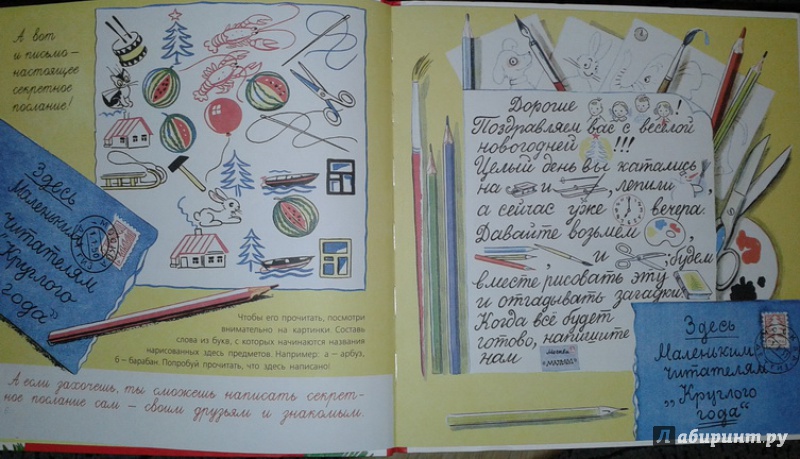 А вот
и письмо —
настоящее
секретное
послание!
Здесь
Маленьким
читателям
„Круглого
года“
Чтобы его прочитать, посмотри
внимательно на картинки. Составь
слова из букв, с которых начинаются названия
нарисованных здесь предметов. Например: а – арбуз,
б – барабан. Попробуй прочитать, что здесь написано!
А если захочешь, ты сможешь написать секрет-
ное послание сам — своим друзьям и знакомым.
Дорогие !
Поздравляем вас с веселой
новогодней !!!
Целый день вы катались
на и , лепили ,
а сейчас уже вечера.
Давайте возьмем ,
, и ; будем
вместе рисовать эту
и отгадывать загадки.
Когда всё будет
готово, напишите
нам Москва
„Малыш“
Здесь
Маленьким
читателям
„Круглого
года“
Лабиринт.ру